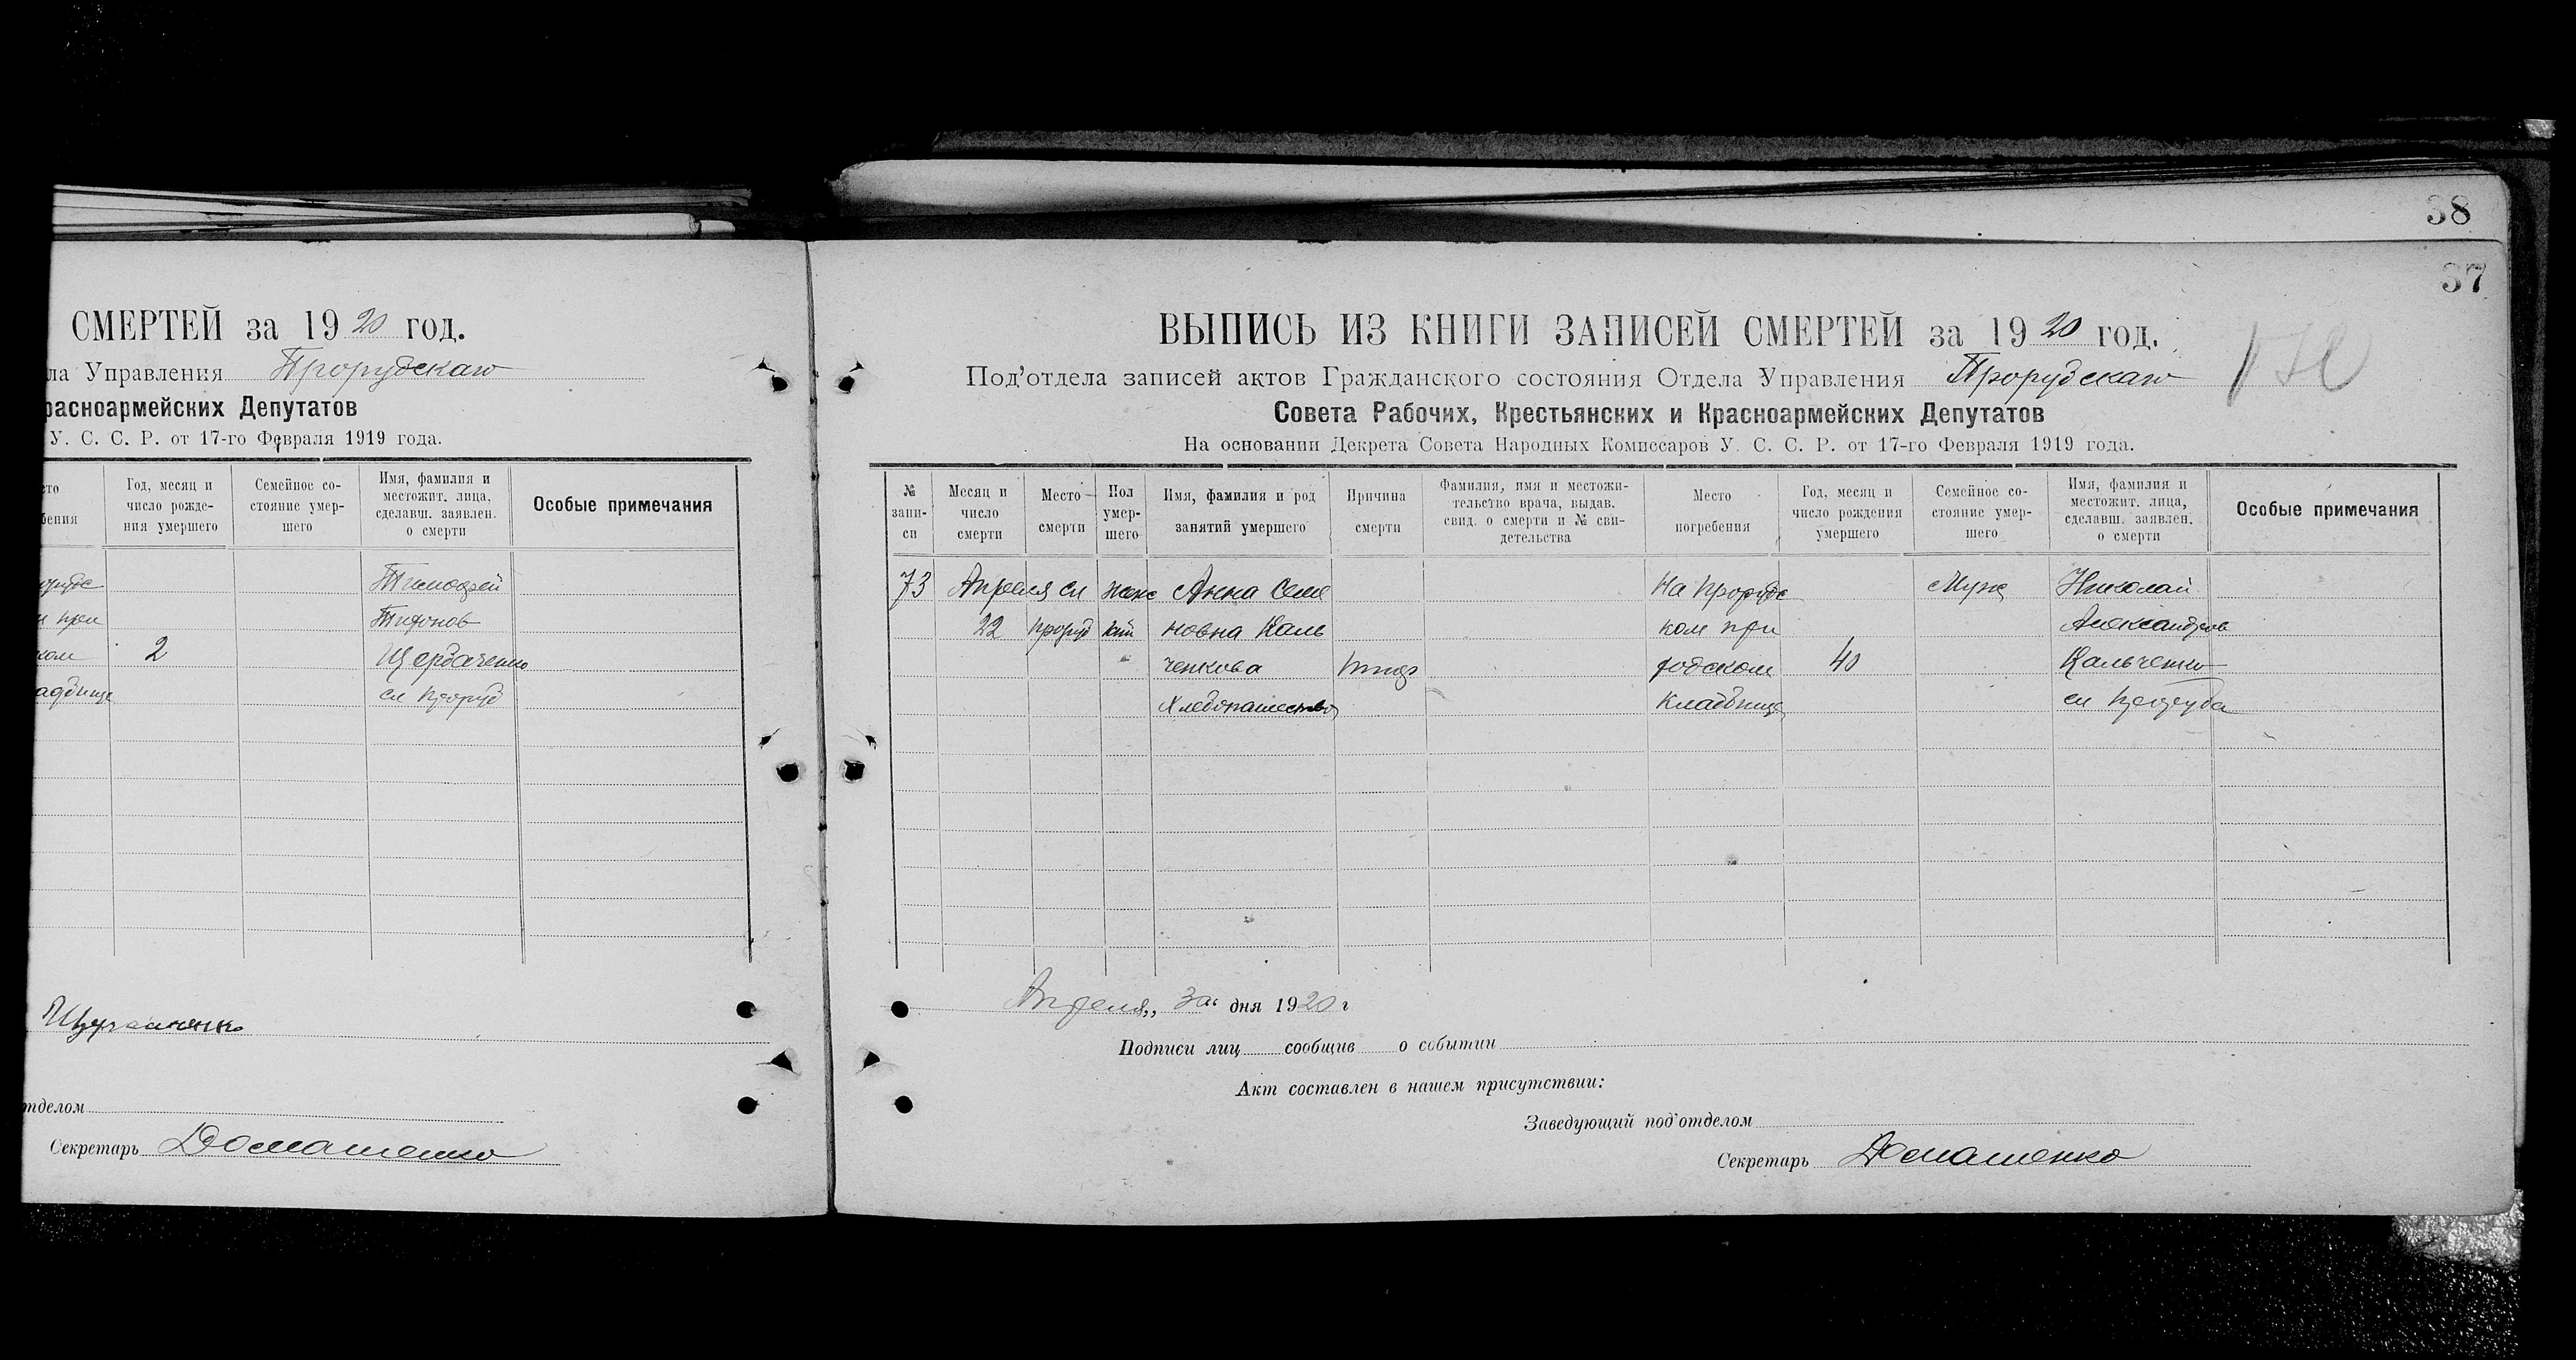 38
37
СМЕРТЕЙ за 1920 год.
ла Управления Прорубскаго
расноармейских Депутатов
У. С. С. Р. от 17-го Февраля 1919 года.
сто
бения
Год, месяц и
число рожде-
ния умершего
Семейное со-
стояние умер-
шего
Имя, фамилия и
местожит. лица,
сделавш. заявлен.
о смерти
Особые примечания
Тимофей
Тихонов
ком 2 Щербаченко
адбище сл Проруб
тделом
Секретарь Домашенко
ВЫПИСЬ ИЗ КНИГИ ЗАПИСЕЙ СМЕРТЕЙ за 1920 год.
Под’отдела записей актов Гражданского состояния Отдела Управления Прорубскаго
Совета Рабочих, Крестьянских и Красноармейских Депутатов
На основании Декрета Совета Народных Комиссаров У. С. С. Р. от 17-го Февраля 1919 года.
№
запи-
си
Месяц и
число
смерти
Место
смерти
Пол
умер-
шего
Имя, фамилия и род
занятий умершего
Причина
смерти
Фамилия, имя и местожи-
тельство врача, выдав.
свид. о смерти и № сви-
детельства
Место
погребения
Год, месяц и
число рождения
умершего
Семейное со-
стояние умер-
шего
Имя, фамилия и
местожит. лица,
сделавш. заявлен.
о смерти
Особые примечания
73 Апреля сл женс Анна Семе На Прорубс Муж Николай
22 Проруб кий новна Каль ком при Александров
ченкова тиф 40 Кальченко
Хлебопашество Кладбище сл Проруба
Апреля „ 30 “ дня 1920 г
Подписи лиц сообщив о событии
Акт составлен в нашем присутствии:
Заведующий под’отделом
Секретарь Домашенко